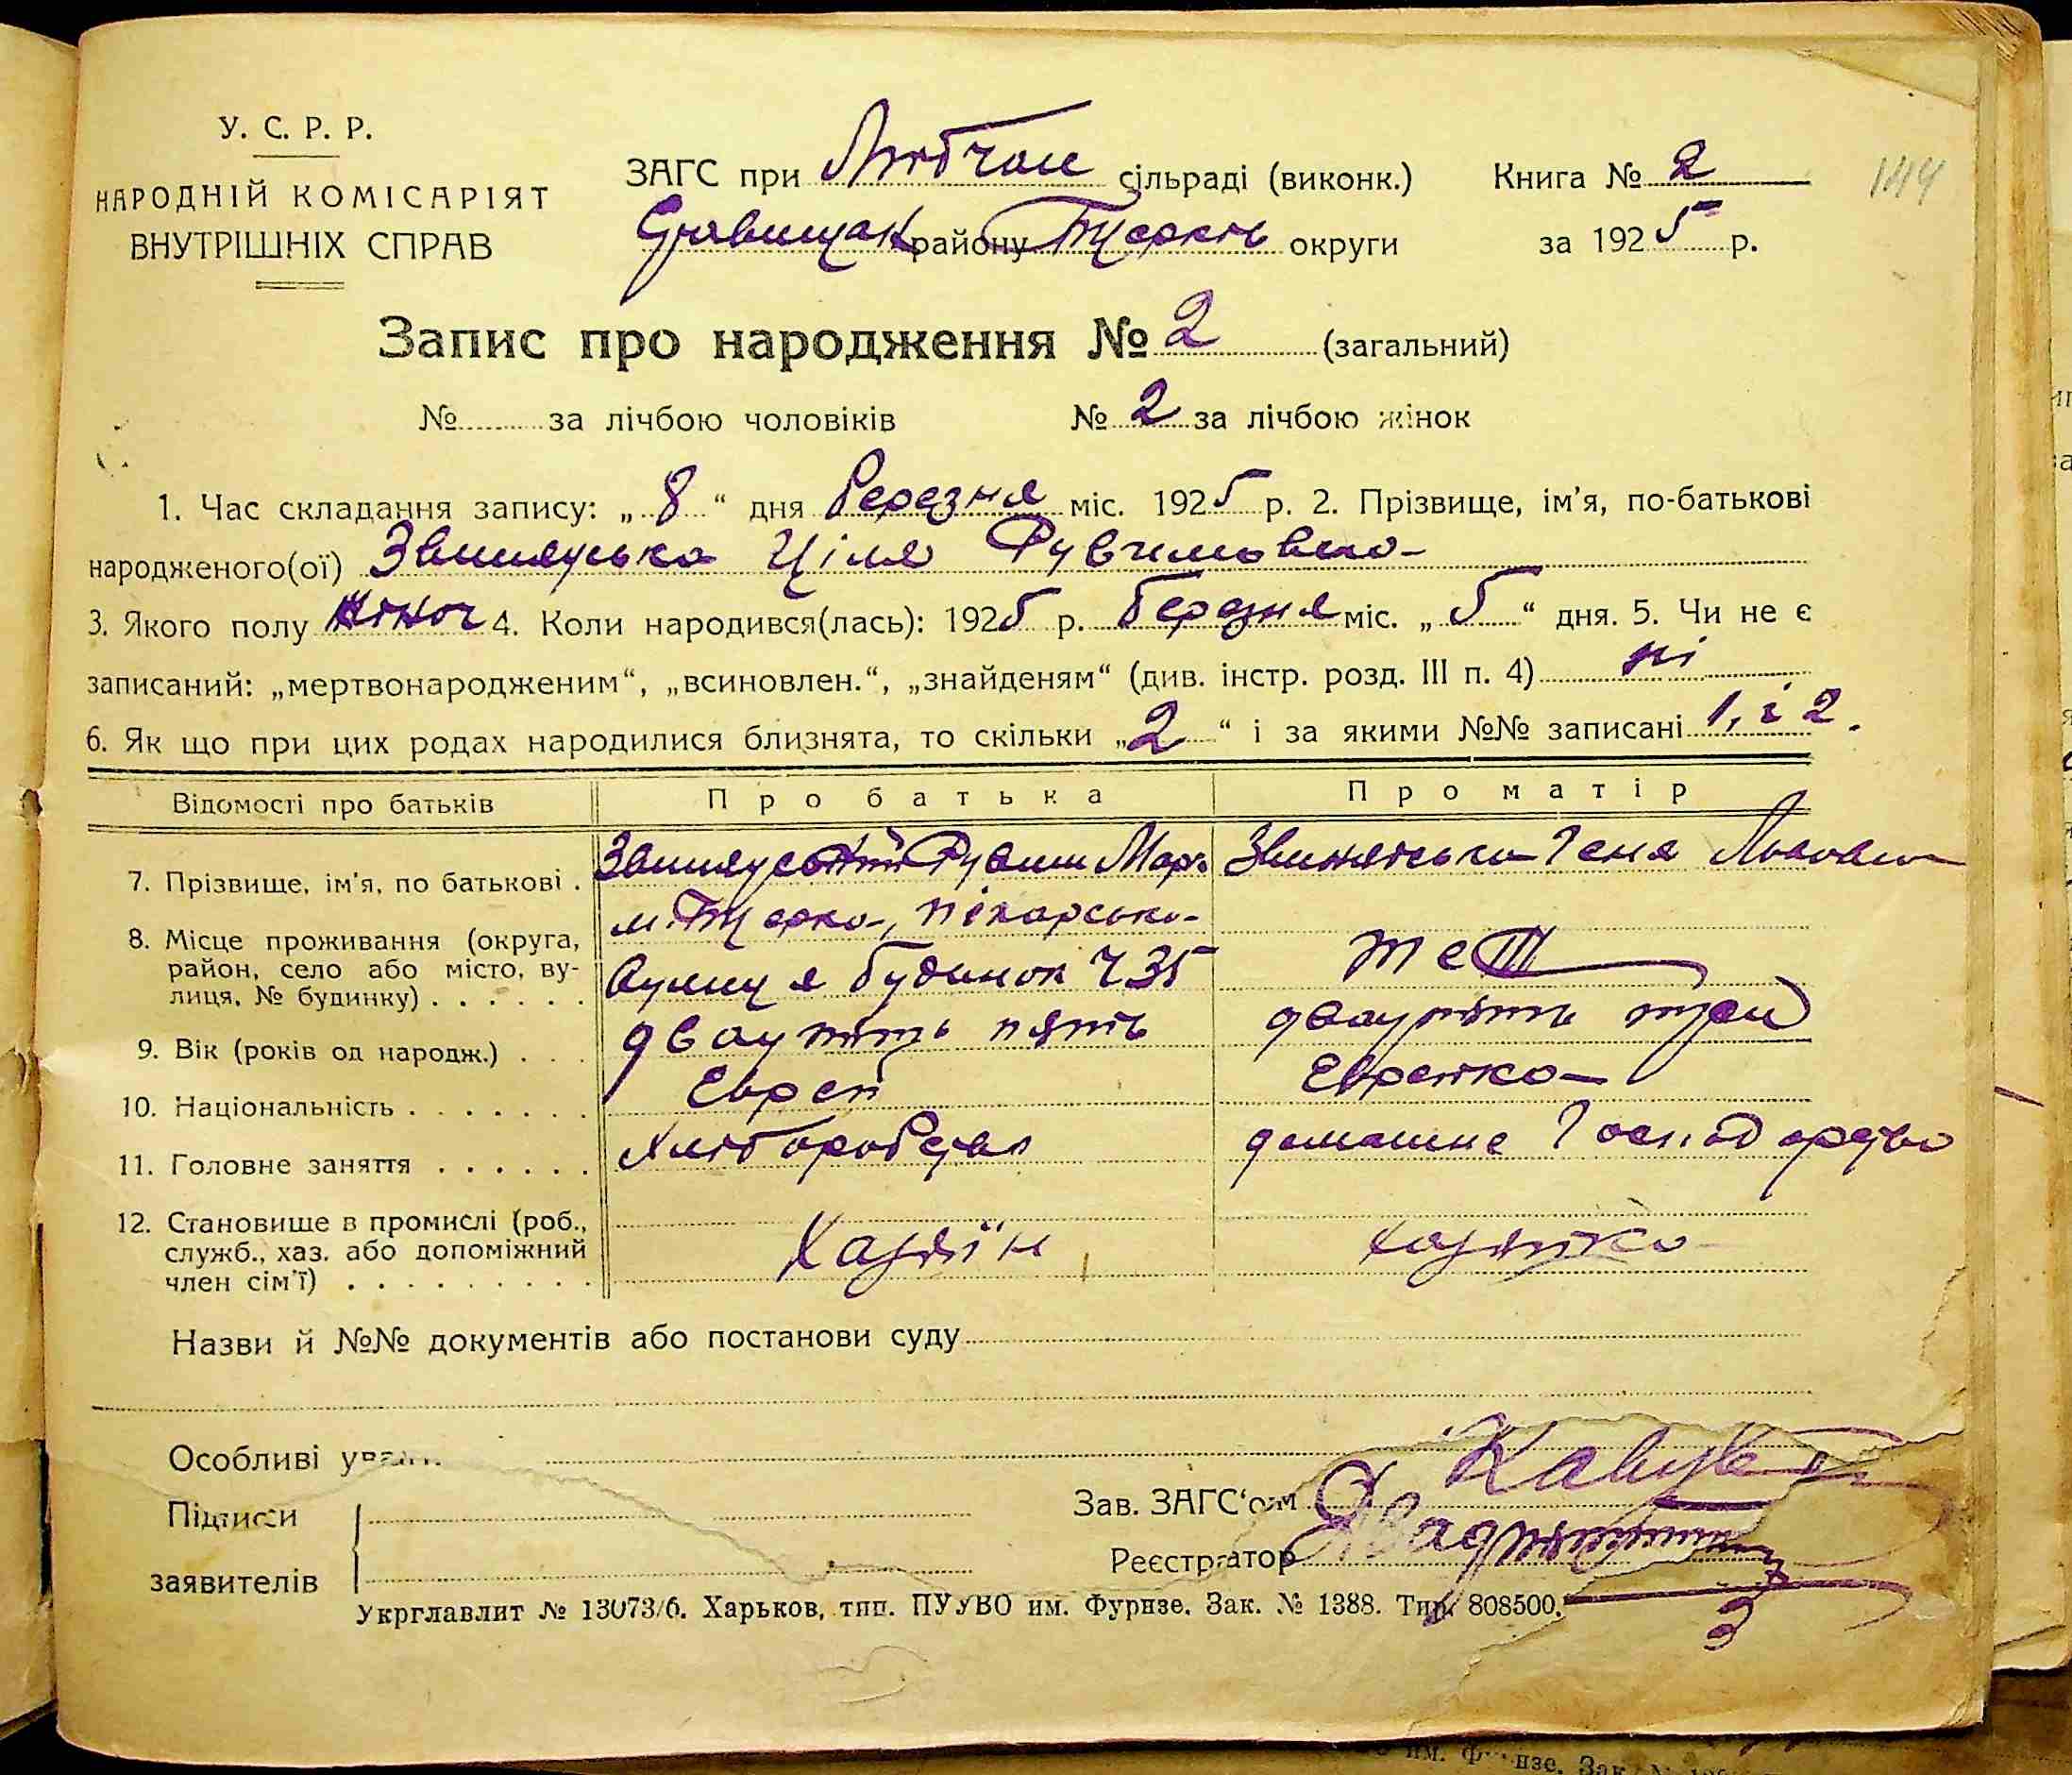 У. С. Р. Р.
НАРОДНІЙ КОМІСАРІЯТ
ВНУТРІШНІХ СПРАВ
ЗАГС при сільраді (виконк.)
району округи
Книга № 2
за 1925 р.
144
Запис про народження № 2 (загальний)
№ за лічбою чоловіків № 2 за лічбою жінок
1. Час складання запису: „8“ дня березня міс. 1925 р. 2. Прізвище, ім’я, по-батькові
народженого(ої) Ціля Рувимовна
3. Якого полу жіноч 4. Коли народився(лась): 1925 р. березня міс. „5“ дня. 5. Чи не є
записаний: „мертвонародженим“, „всиновлен.“, „знайденям“ (див. інстр. розд. III п. 4) ні
6. Як що при цих родах народилися близнята, то скільки „2“ і за якими №№ записані 1, і 2.
Відомості про батьків Про батька Про матір
7. Прізвище, ім’я, по батькові . Рувим Мар.
8. Місце проживання (округа, район, село або місто, вулиця, № будинку) . . . . . .
вулиця будинок Ч 35
теж
9. Вік (років од народж.) . . . двацять пять двацять три
10. Національність . . . . . . . Еврей Еврейка
11. Головне заняття . . . . . . Хліборобство домашнє господарство
12. Становище в промислі (роб.,
служб., хаз. або допоміжний
член сім’ї) . . . . . . . . .
Хазяїн хазяйка
Назви й №№ документів або постанови суду
Особливі
Підписи
заявителів
Зав. ЗАГС‘ом
Реєстратор
Укрглавлит № 13073/6. Харьков, тип. ПУУВО им. Фурнзе. Зак. № 1388. Тир. 808500.